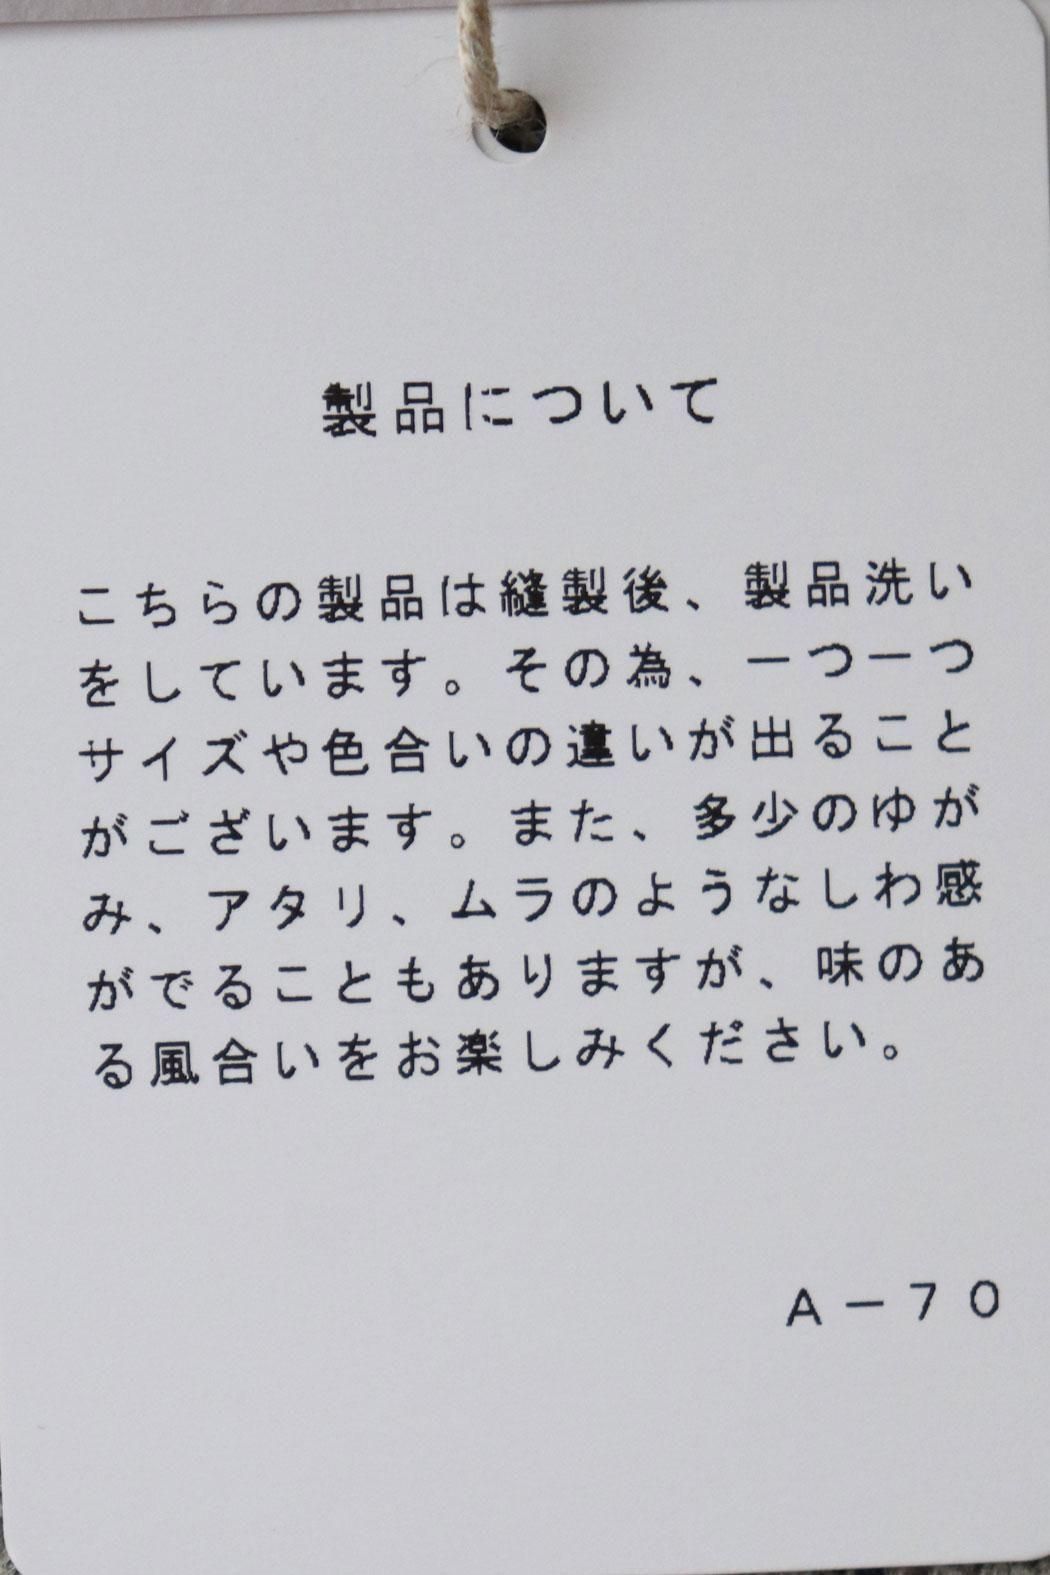 製品について
こちらの製品は縫製後、製品洗い
をしています。その為、一つ一つ
サイズや色合いの違いが出ること
がございます。また、多少のゆが
み、アタリ、ムラのようなしわ感
がでることもありますが、味のあ
る風合いをお楽しみください。
A－70